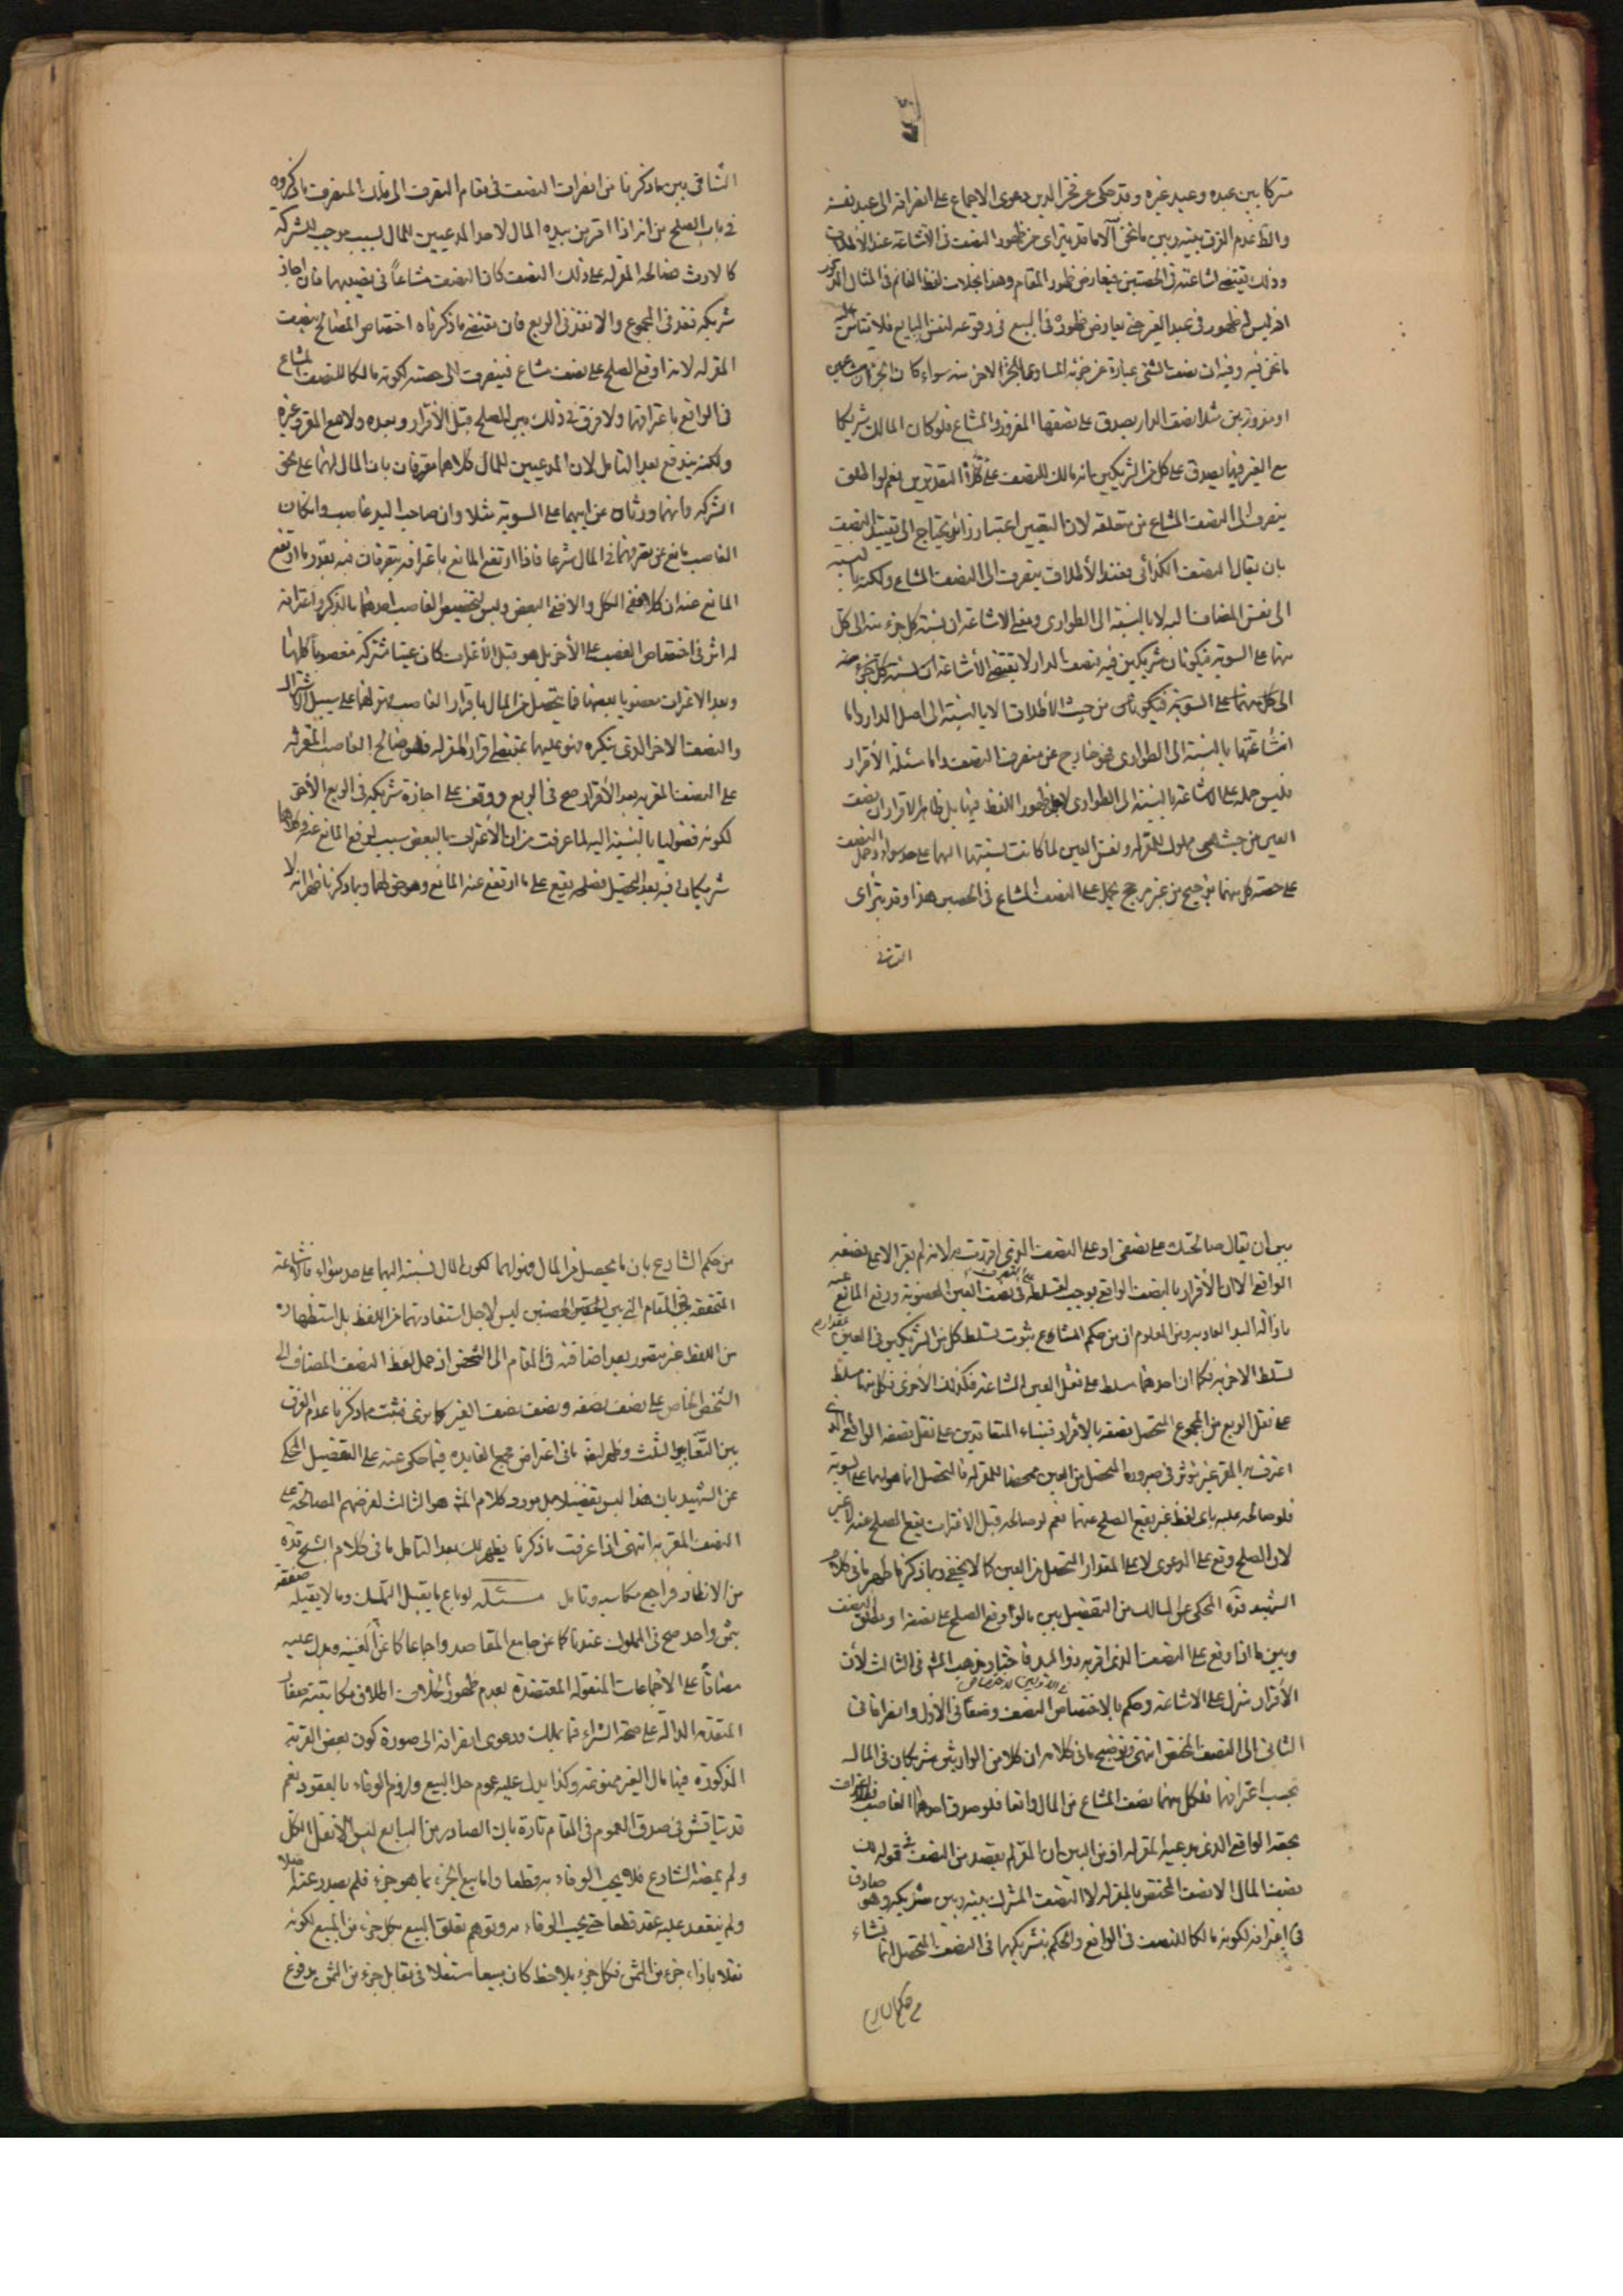 مشتركا بين عبده وعبد غيره وقد حكى عن فخر الدين دعوى الاجماع على انصرافه الى عبد نفسه
والظ عدم الفرق بينه وبين ما نحن الا ما قد يترای من ظهور النصف فی الاشاعة عند الاطلاق
وذلك يقتضي اشاعته فی الحصتين فيعارض ظهور المقام وهذا بخلاف لفظ الغانم فی المثال المذكور
اذ ليس له ظهور فی عبد الغير حتى يعارض ظهوره فی البيع فی وقوعه لنفس البايع فلا يقاس عليه
ما نحن فيه وفيه ان نصف الشئ عبارة عن جزئه المساوی للجزء الاخر منه سواء كان الجزءان مشاعين
او مفروزين مثلا نصف الدار يصدق على نصفها المفروز والمشاع فلو كان المالك شريكا
مع الغير فيها يصدق على كل من الشريكين انه مالك للنصف على كلا التقديرين نعم لو اطلق
ينصرف الى النصف المشاع من متعلقه لان التعيين اعتبار زائد يحتاج الى تقييد النصف
بان يقال النصف الكذائی فعند الاطلاق ينصرف الى النصف المشاع ولكنه بالنسبة
الى نفس المضاف اليه لا بالنسبة الى الطواری ومعنى الاشاعة ان نسبة كل جزء منه الى كل
منهما على السوية فيكونان شريكين فيه فنصف الدار لا يقتضي الاشاعة ان نسبة كل جزء منه
الى كل منهما على السوية من حيث الاطلاق الا بالنسبة الى اصل الدار واما
اشاعتها بالنسبة الى الطواری فهو خارج عن منصرف النصف واما مسئلة الاقرار
فليس حمله على الاشاعة بالنسبة الى الطواری لاجل ظهور اللفظ فيها بل ظاهر الاقرار ان نصف
العين من حيث هی مملوك للمقر له ونفس العين لما كانت نسبتها اليهما على حد سواء وحمل النصف
على حصة كل منهما ترجيح من غير مرجح يحمل على النصف المشاع فی الحصتين هذا وقد يترای
التنافی
التنافی بين ما ذكرنا من انصراف النصف فی مقام التصرف الى ملك المتصرف ما ذكروه
فی باب الصلح من انه اذا اقر من بيده المال لاحد المدعيين للمال بسبب موجب للشركة
كالارث فصالحه المقر له على ذلك النصف كان النصف مشاعاً فی نصيبهما فان اجاز
شريكه نفذ فی المجموع والا نفذ فی الربع فان مقتضى ما ذكرناه اختصاص المصالح بنصف
المقر له لانه اوقع الصلح على نصف مشاع فينصرف الى حصته لكونه مالكا للنصف المشاع
فی الواقع باعترافهما ولا فرق فی ذلك بين الصلح قبل الاقرار وبعده ولا مع المقر وغيره
ولكنه يندفع بعد التامل لان المدعيين للمال كلاهما معترفان بان المال لهما على نحو
الشركة وانهما ورثاه عن ابيهما على السوية مثلا وان صاحب اليد غاصب وان كان
الغاصب مانع عن تصرفهما فی المال شرعا فاذا ارتفع المانع باعترافه يتصرفان فيه بقدر ما ارتفع
المانع عنه ان كلا ففی الكل والا ففی البعض وليس لتخصيص الغاصب احدهما بالذكر واعترافه
له اثر فی اختصاص الغصب على الاخر بل هو قبل الاعتراف كان عينا مشتركة مغصوبا كلها
وبعد الاعتراف مغصوبا بعضها فما يتحصل من المال باقرار الغاصب فهو لهما على سبيل الاشتراك
والنصف الاخر الذی ينكره فهو عليهما بمقتضى اقرار المقر له فلو صالح الغاصب المقر له
على النصف المقر به بعد الاقرار صح فی الربع ووقف على اجازة شريكه فی الربع الاخر
لكونه فضوليا بالنسبة اليه لما عرفت من ان الاعتراف بالبعض سبب لرفع المانع عنه وكلاهما
شريكان فيه بعد التحصيل فصلحه يقع على ما ارتفع عنه المانع وهو حق لهما وبما ذكرنا ظهر انه لا
بين ان يقال صالحتك على نصفی او على النصف الذی اقررت به لانه لم يقر الا على نصفه
الواقعی الا ان الاقرار بالنصف الواقعی يوجب تسلطه على التصرف فی نصف العين المغصوبة ورفع المانع عنه
بازالة اليد العادية ومن المعلوم ان من حكم المشاع ثبوت تسلط كل من الشريكين فی العين بمقدار
تسلط الاخر فكما ان احدهما مسلط على نقل العين المشاعة فكذلك الاخر فكل منهما مسلط
على نقل الربع من المجموع المتحصل نصفه بالاقرار فبناء المتعاقدين على نقل نصفه الواقعی الذی
اعترف به المقر غير مؤثر فی صيرورة المتحصل من العين مختصا للمقر له فالمتحصل انما هو لهما على السوية
فلو صالحه عليه بای لفظ عبر يقع الصلح عنهما نعم لو صالحه قبل الاعتراف يقع الصلح عنه لا غير
لان الصلح وقع على الدعوى لا على المقدار المتحصل من العين كما لا يخفى وبما ذكرنا ظهر ما فی كلام
الشهيد قده المحكی عن المسالك من التفصيل بين ما لو اوقع الصلح على نصفه او مطلق النصف
وبين ما اذا وقع على النصف الذی اقر به ذو اليد فاختار مذهب المش فی الثالث لان
الاقرار منزل على الاشاعة وحكم بالاختصاص فی الاولين لاختصاص النصف وضعا فی الاول وانصرافا فی
الثانی الى النصف المختص انتهى وتوضيح ما فی كلامه ان كلا من الوارثين شريكان فی المال
بحسب اعترافهما فلكل منهما نصف المشاع من المال واقعا فلو صدق احدهما الغاصب
بحقه الواقعی الذی يدعيه المقر له اذ من البين ان المقر لم يقصد من النصف فی قوله
نصف المال الا نصف المختص بالمقر له لا النصف المشترك بينه وبين شريكه وهو صادق
فی اعترافه لكونه مالكا للنصف فی الواقع والحكم بتشريكهما فی النصف المتحصل انما نشاء
من حكم الشارع
من حكم الشارع بان ما يحصل من المال فهو لهما لكون المال نسبته اليهما على حد سواء فالاشاعة
المتحققة فی المقام التی بين الحصتين ليس لاجل استفادتهما من اللفظ بل استظهاره
من اللفظ غير متصور بعد اضافته فی المقام الى الشخص اذ حمل لفظ النصف المضاف الى
الشخص الخاص على نصف نصفه ونصف نصف الغير كما ترى فثبت مما ذكرنا عدم الفرق
بين التعابير الثلث وظهر ايضا ما فی اعتراض مجمع الفايدة فيما حكى عنه على التفصيل المحكی
عن الشهيد بان هذا ليس تفصيلا بل مورد كلام المش هو الثالث لفرضهم المصالحة على
النصف المقر به انتهى اذا عرفت ما ذكرنا يظهر لك بعد التامل ما فی كلام الشيخ قده
من الانظار فراجع مكاسبه وتامل مسئلة لو باع ما يقبل التملك وما لا يقبله صفقة
بثمن واحد صح فی المملوك عندنا كما عن جامع المقاصد واجماعا كما عن الغنية ويدل عليه
مضافا على الاجماعات المنقولة المعتضدة بعدم ظهور الخلاف اطلاق مكاتبة صفار
المتقدمة الدالة على صحة الشراء فيما يملك ودعوى انصرافه الى صورة كون بعض القرية
المذكورة فيها مال الغير ممنوعة وكذا يدل عليه عموم حل البيع ولزوم الوفاء بالعقود نعم
قد يناقش فی صدق العموم فی المقام تارة بان الصادر من البايع ليس الا نقل الكل
ولم يمضه الشارع فلا يجب الوفاء به قطعا واما بيع الجزء بما هو جزء فلم يصدر عنه اصلا
ولم ينعقد عليه عقد قطعا حتى يجب الوفاء به وتوهم تعلق البيع بكل جزء من المبيع لكونه
نقلا بازاء جزء من الثمن فكل جزء يلاحظ كان مبيعا مستقلا فی مقابل جزء من الثمن مدفوع